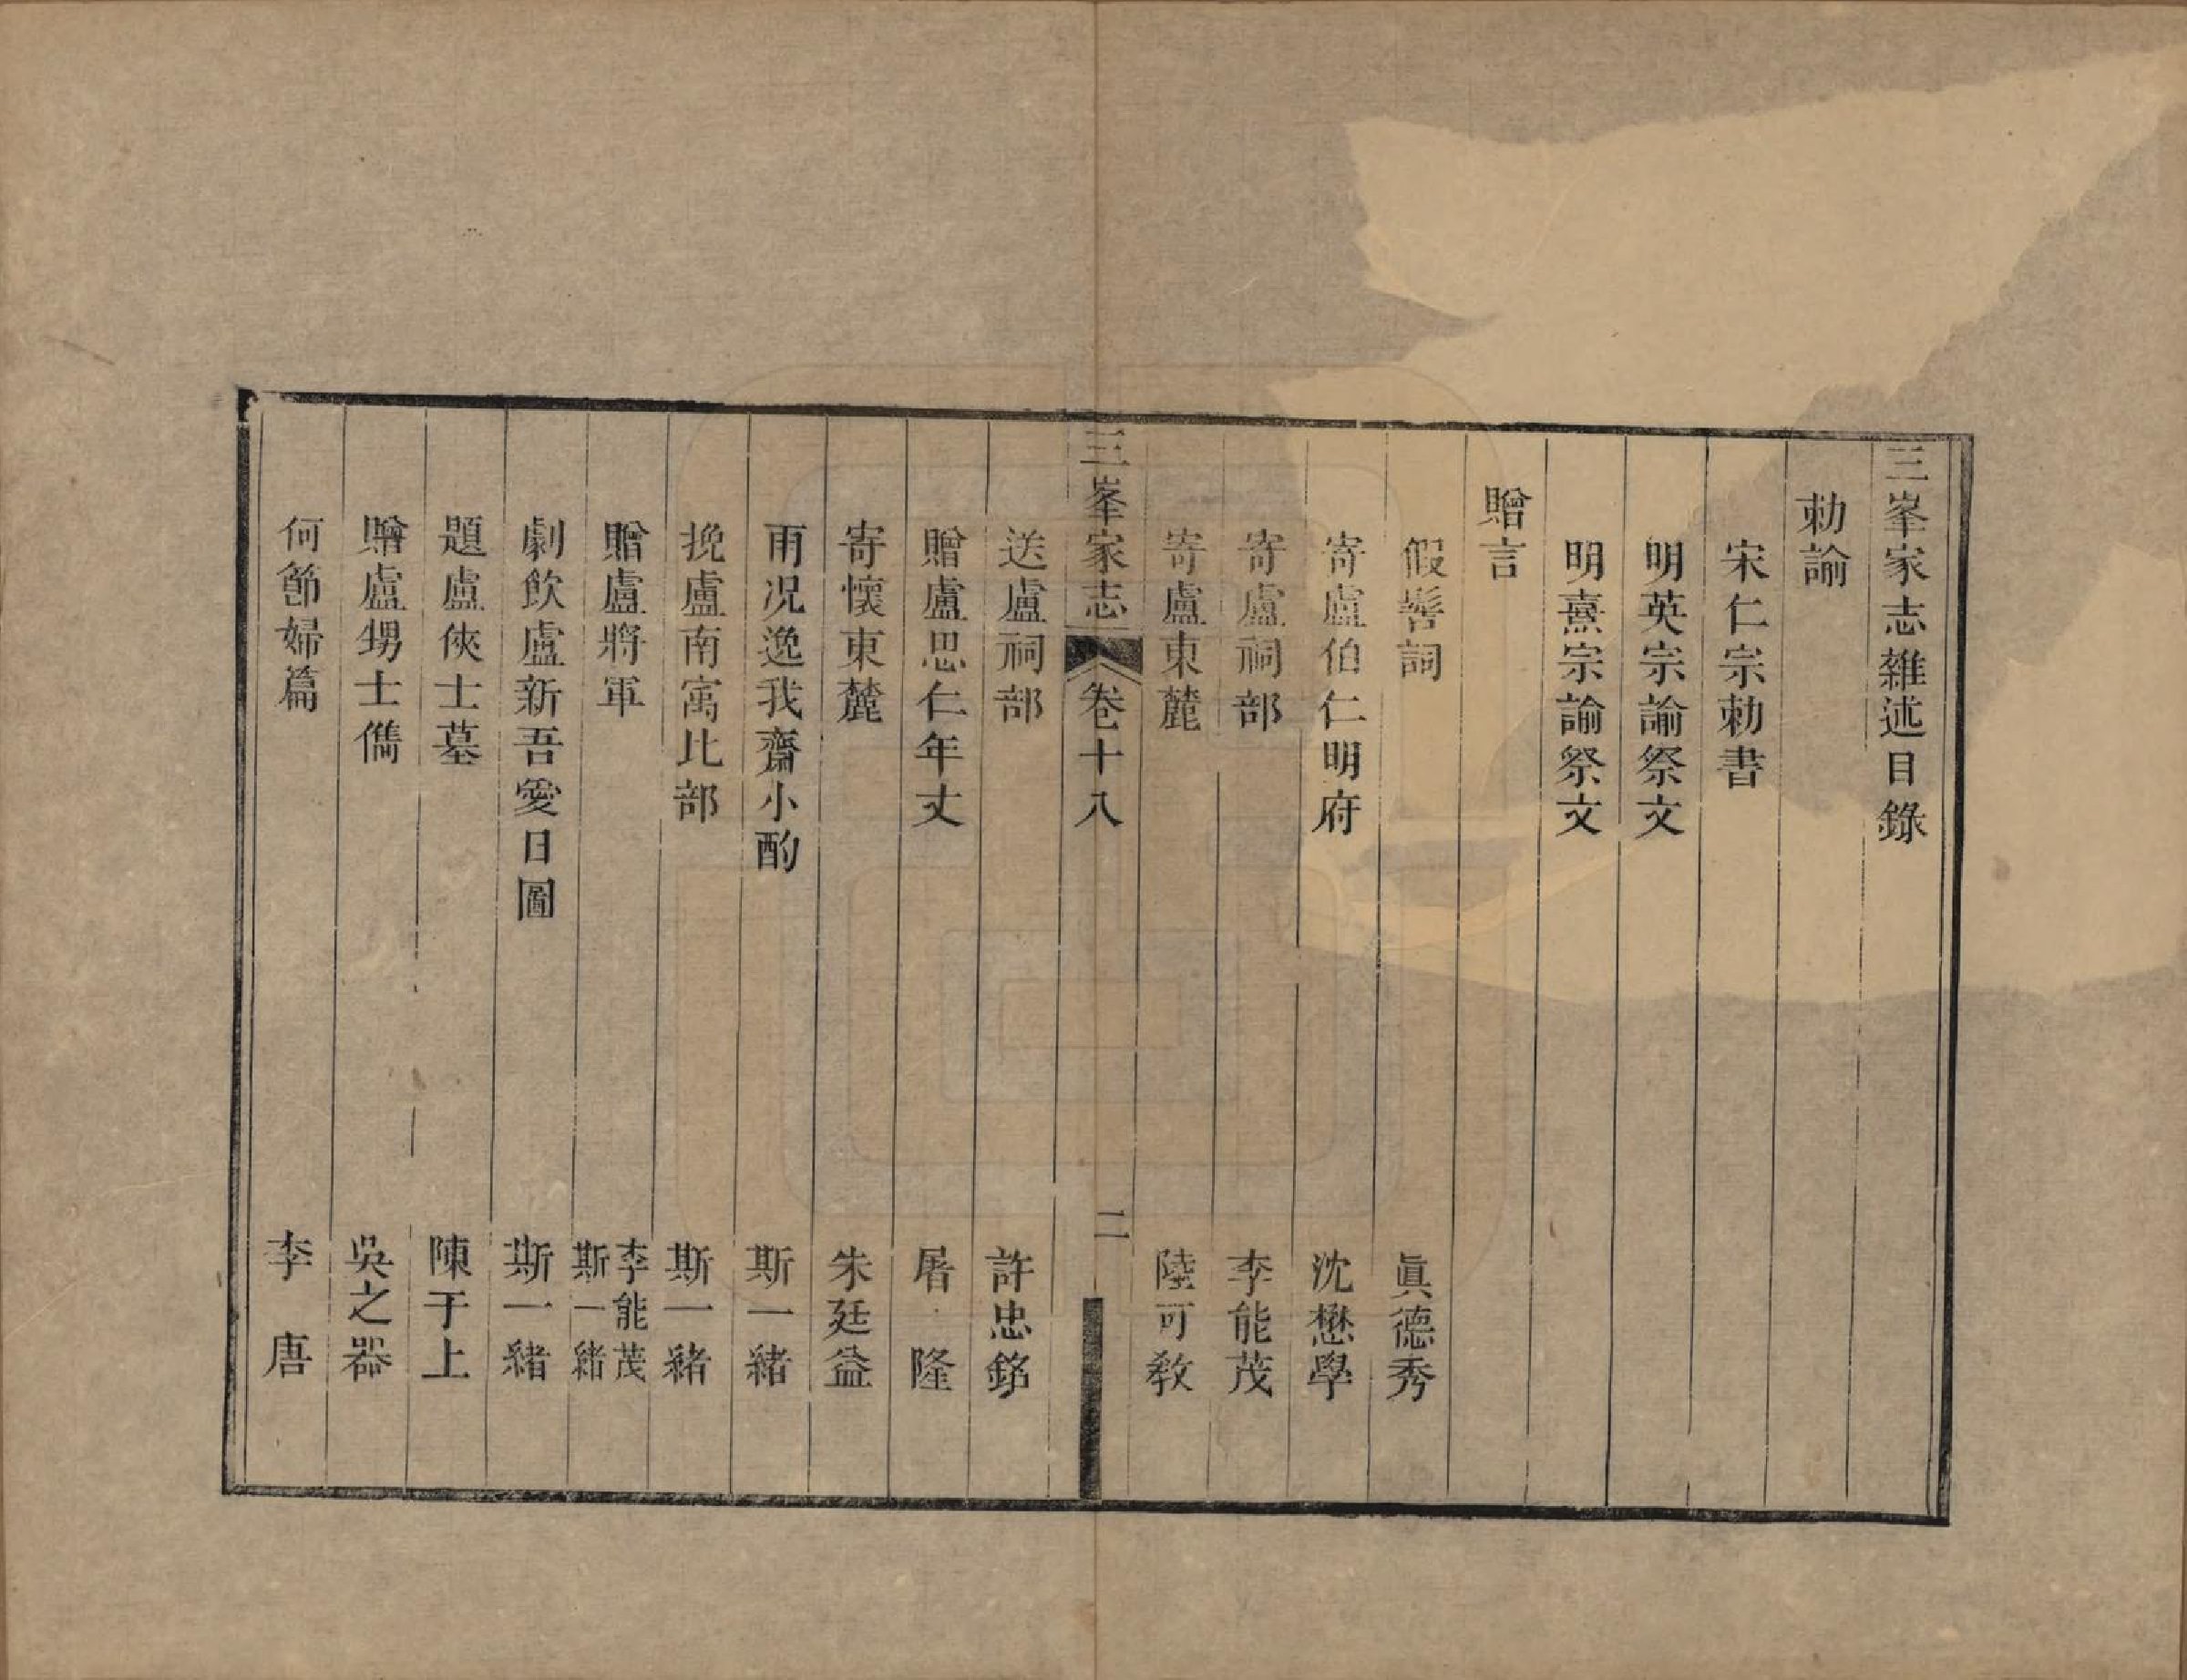 三峯家志雜述目錄
勅諭
宋仁宗勅書
明英宗諭祭文
明熹宗諭祭文
贈言
假髻詞 眞德秀
寄盧伯仁明府 沈懋學
寄盧祠部 李能茂
寄盧東麓 陸可教
三峯家志 卷十八 二
送盧祠部 許忠銘
贈盧思仁年丈 屠隆
寄懷東麓 朱廷益
雨况逸我齋小酌 斯一緒
挽盧南寓比部 斯一緒
贈盧將軍 李能茂 斯一緒
劇飲盧新吾愛日圖 斯一緒
題盧俠士墓 陳于上
贈盧甥士儁 吳之器
何節婦篇 李唐